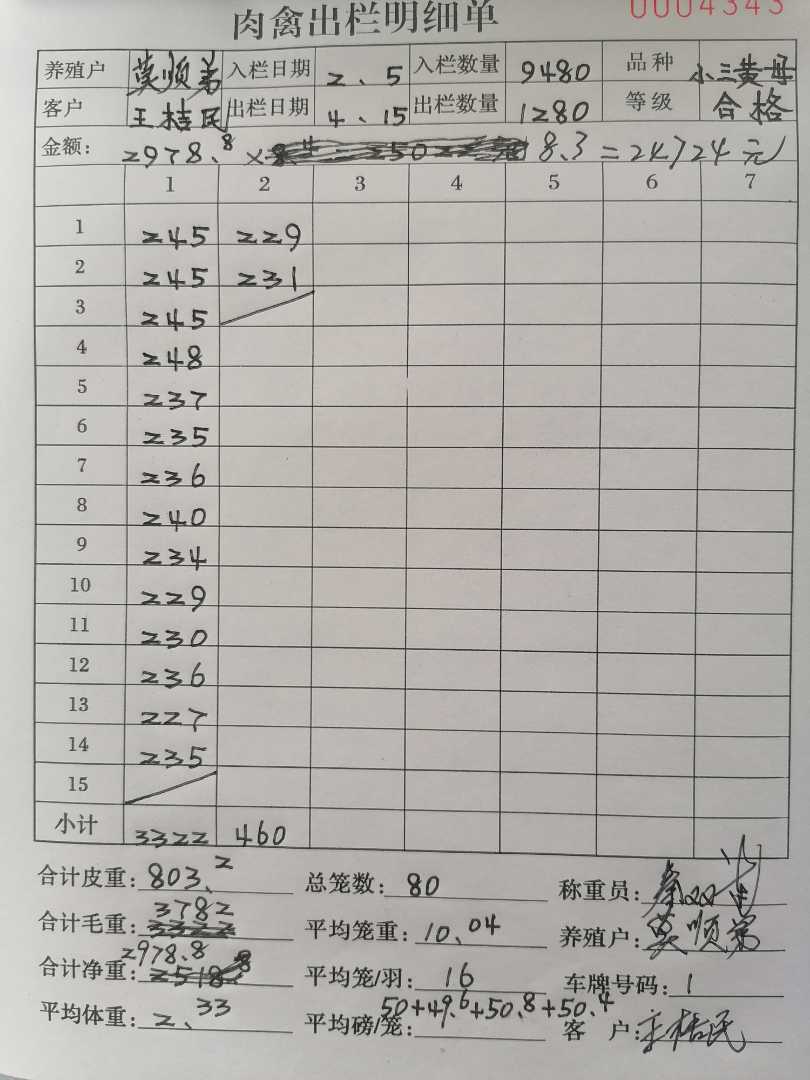 肉禽出栏明细单
0004343
养殖户 莫顺弟 入栏日期 2、5 入栏数量 9480 品种 小三黄母
客户 王桂民 出栏日期 4、15 出栏数量 1280 等级 合格
金额: 2978.8 × 8.3 = 24724元
1 2 3 4 5 6 7
1 245 229
2 245 231
3 245
4 248
5 237
6 235
7 236
8 240
9 234
10 229
11 230
12 236
13 227
14 235
15
小计 3322 460
合计皮重: 803.2 总笼数: 80 称重员:
合计毛重: 3782 平均笼重: 10.04 养殖户: 莫顺弟
合计净重: 2978.8 平均笼/羽: 16 车牌号码: 1
平均体重: 2.33 平均磅/笼: 50+49.6+50.8+50.4 客 户: 王桂民